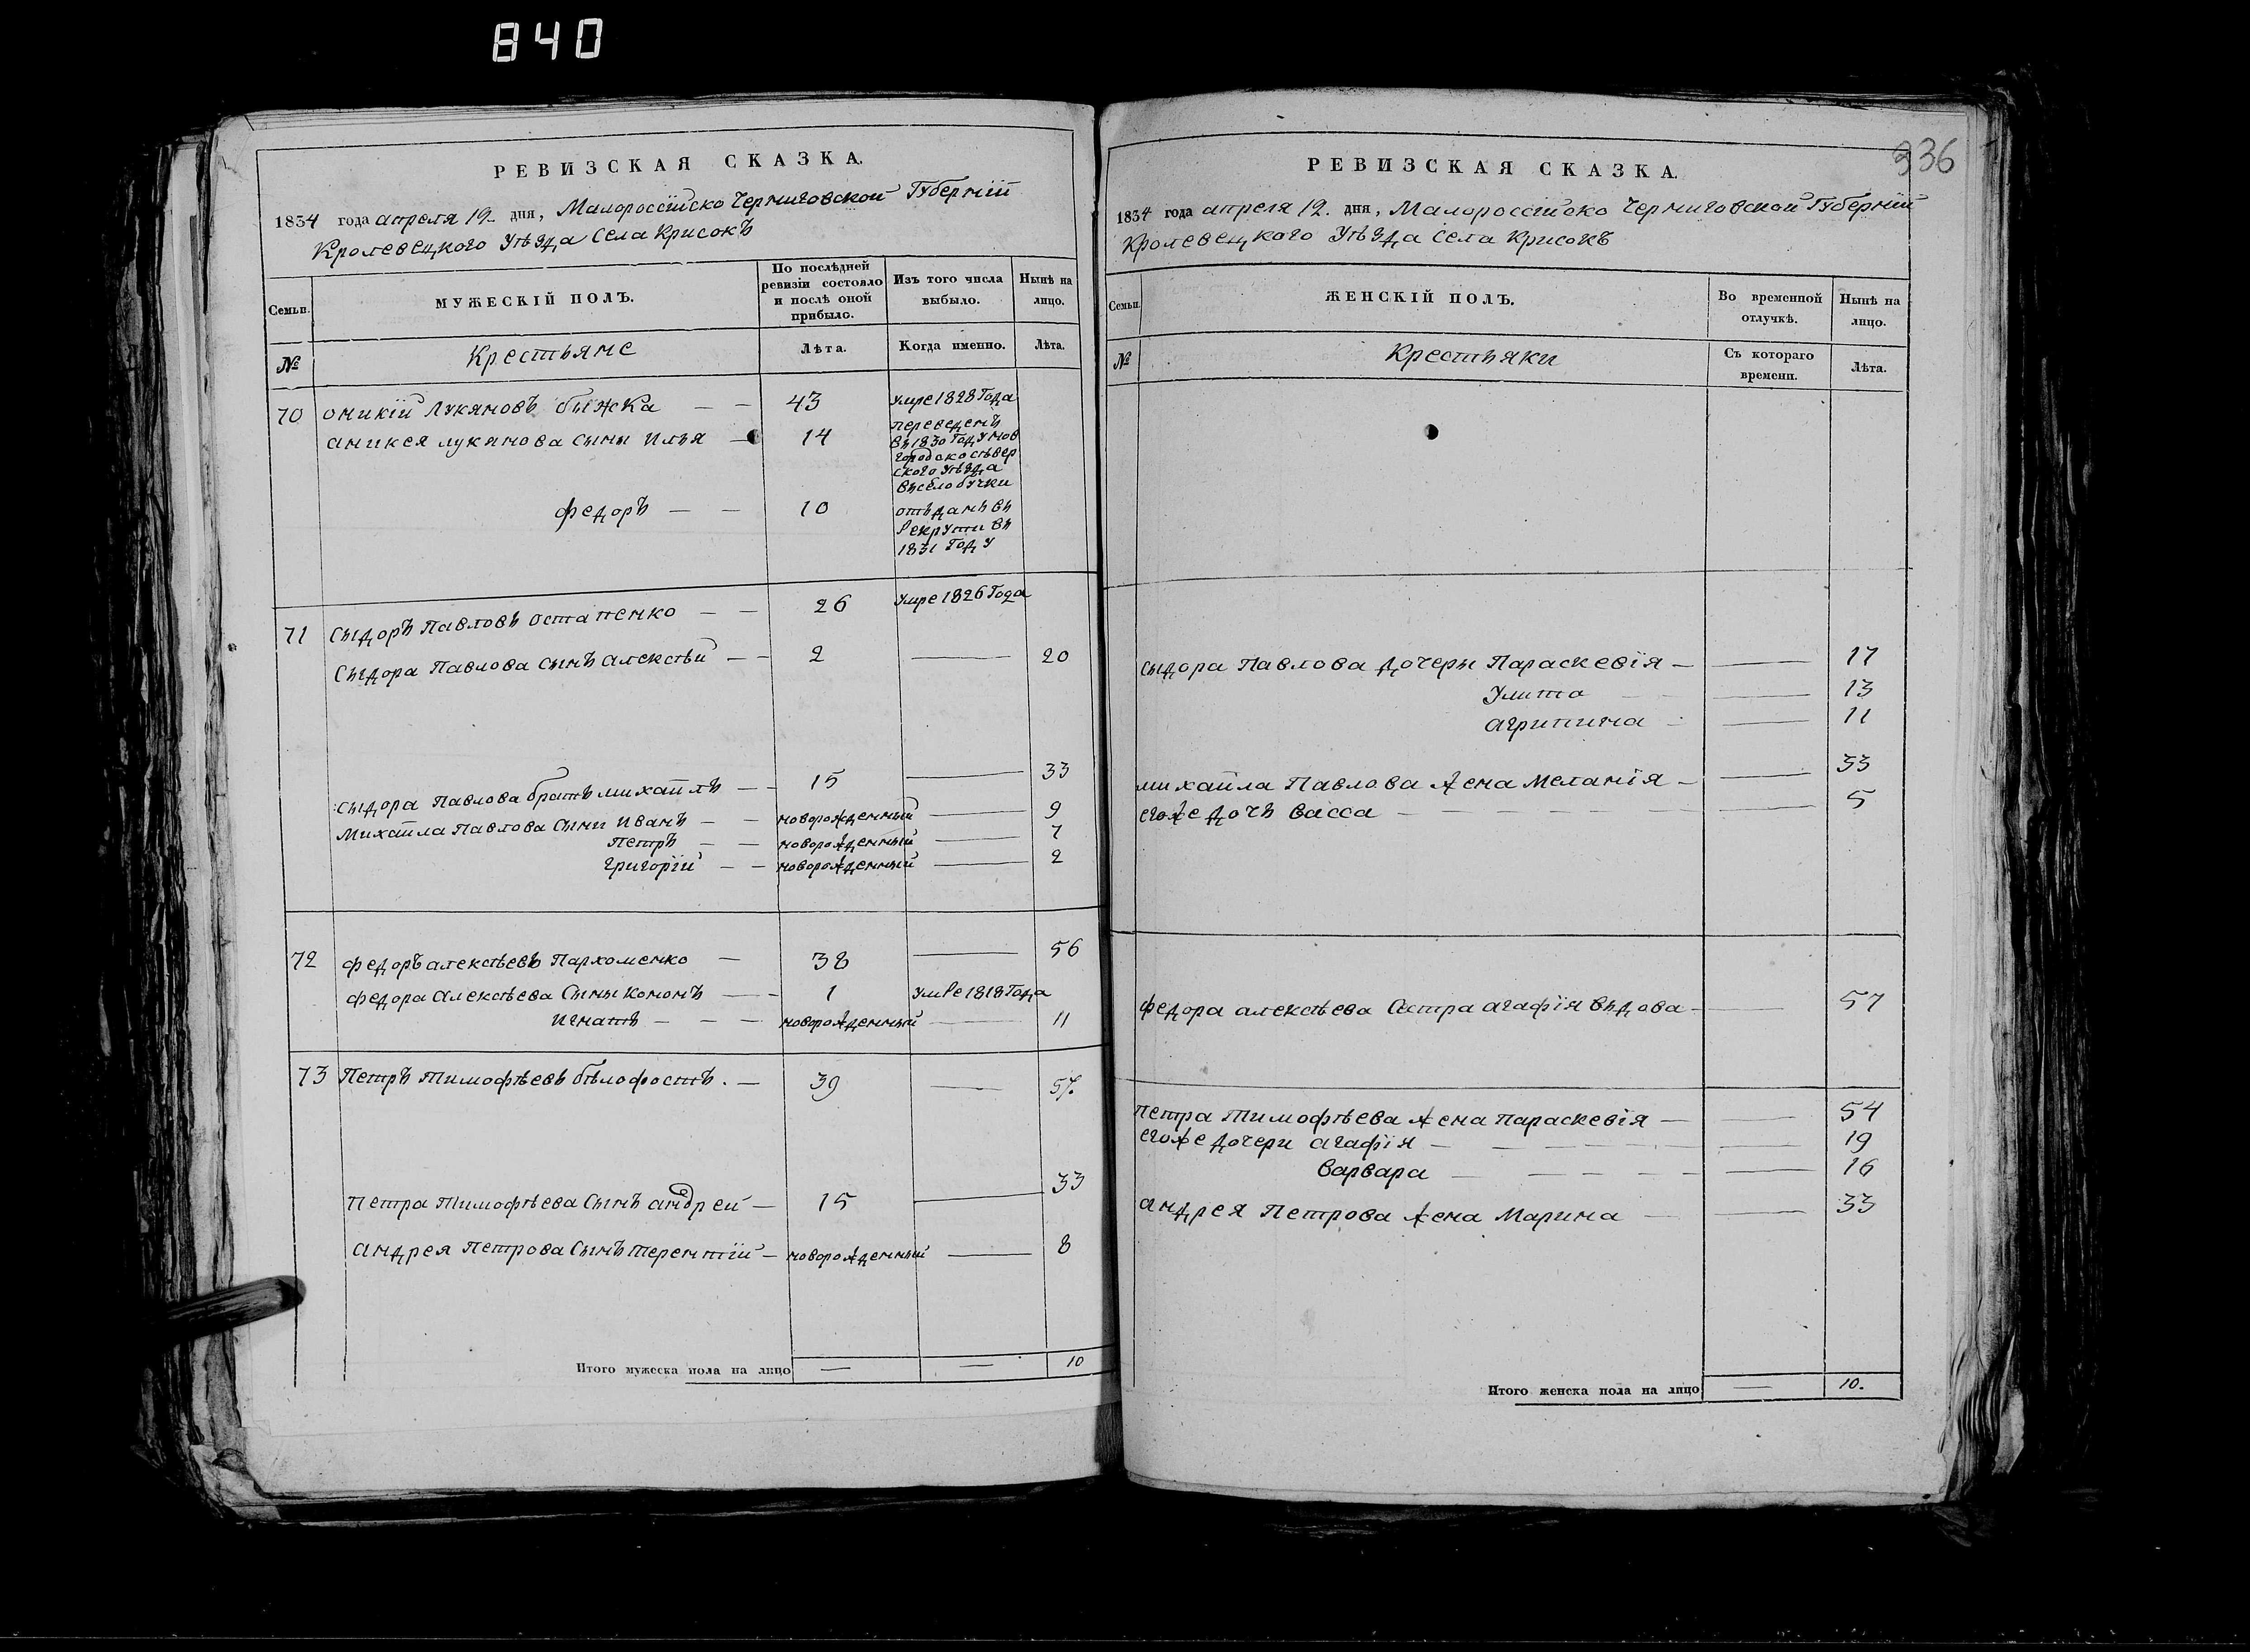 840
РЕВИЗСКАЯ СКАЗКА.
1834 года апреля 19 дня, Малороссійско Черниговской Губерніи
Кролевецкого Уѣзда Села Крисокъ
Семьи. МУЖЕСКІЙ ПОЛЪ. По послѣдней ревизіи состояло и послѣ оной прибыло. Изъ того числа выбыло. Нынѣ на лицо.
№ Крестьяне Лѣта. Когда именно. Лѣта.
70 оникій Лукяновъ быжка — — 43 умре 1828 Года
аникея лукянова сыны илья — 14 переведенъ
въ 1830 Году нов
городско сѣвер
ского уѣзда
въ село бучки
федоръ — — 10 отъданъ въ
рекруты въ
1831 Году
71 Сыдоръ Павловъ остапенко — — 26 умре 1826 Года
Сыдора Павлова сынъ алексѣй — — 2 — 20
сыдора Павлова братъ михайлъ — — 15 — 33
михайла Павлова сыни иванъ — — новорожденный — 9
Петръ — — новорожденный — 7
григорій — — новорожденный — 2
72 федоръ алексѣевъ Пархоменко — 38 — 56
федора алексѣева сыны кононъ — — 1 умре 1818 Года
игнатъ — — — новорожденный — 11
73 Петръ тимофѣевъ бѣлофостъ. — 39 — 57.
Петра тимофѣева сынъ андрей — 15 — 33
андрея петрова сынъ терентій — новорожденный — 8
Итого мужеска пола на лицо — — 10
336
РЕВИЗСКАЯ СКАЗКА.
1834 года апреля 19. дня, Малороссійско Черниговской Губерніи
Кролевецкого Уѣзда села Крисокъ
Семьи. ЖЕНСКІЙ ПОЛЪ. Во временной отлучкѣ. Нынѣ на лицо.
№ Крестьяки Съ котораго времени. Лѣта.
сыдора Павлова дочеры Параскевія — — 17
Улита — 13
агрипина — 11
михайла Павлова жена меланія — — 33
егоже дочъ васса — — 5
федора алексѣева сестра агафія въдова — — 57
петра тимофѣева жена параскевія — — 54
егоже дочери агафія — — 19
варвара — — 16
андрея Петрова жена марина — — 33
Итого женска пола на лицо — 10.